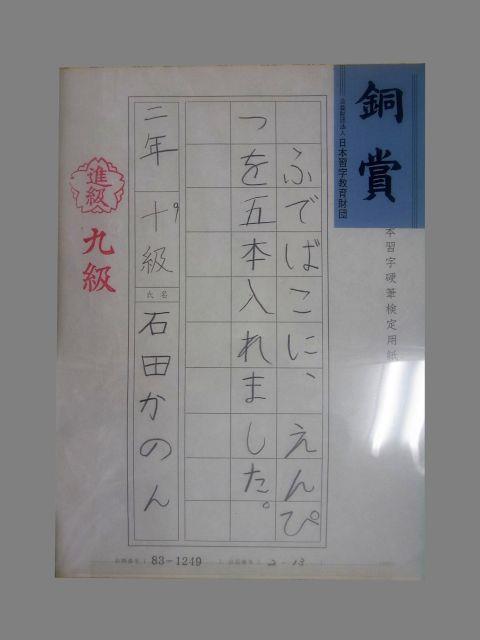 銅賞
公益財団法人 日本習字教育財団
本習字硬筆検定用紙
ふでばこに、えんぴ
つを五本入れました。
二年 十級 氏名 石田かのん
9
進級
九級
83-1249
2-13